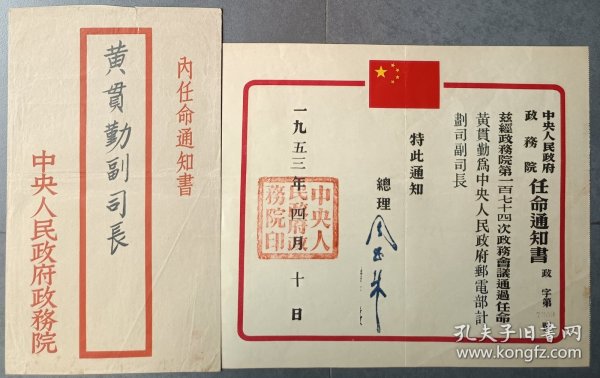 內任命通知書
黄貫勤副司長
中央人民政府政務院
中央人民政府
政務院
任命通知書
政字第
號
茲經政務院第一百七十四次政務會議通過任命
黃貫勤爲中央人民政府郵電部計
劃司副司長
特此通知
總理
中央人
民政府政
務院印
一九五三年四月十日
孔夫子旧书网
www.kongfz.com